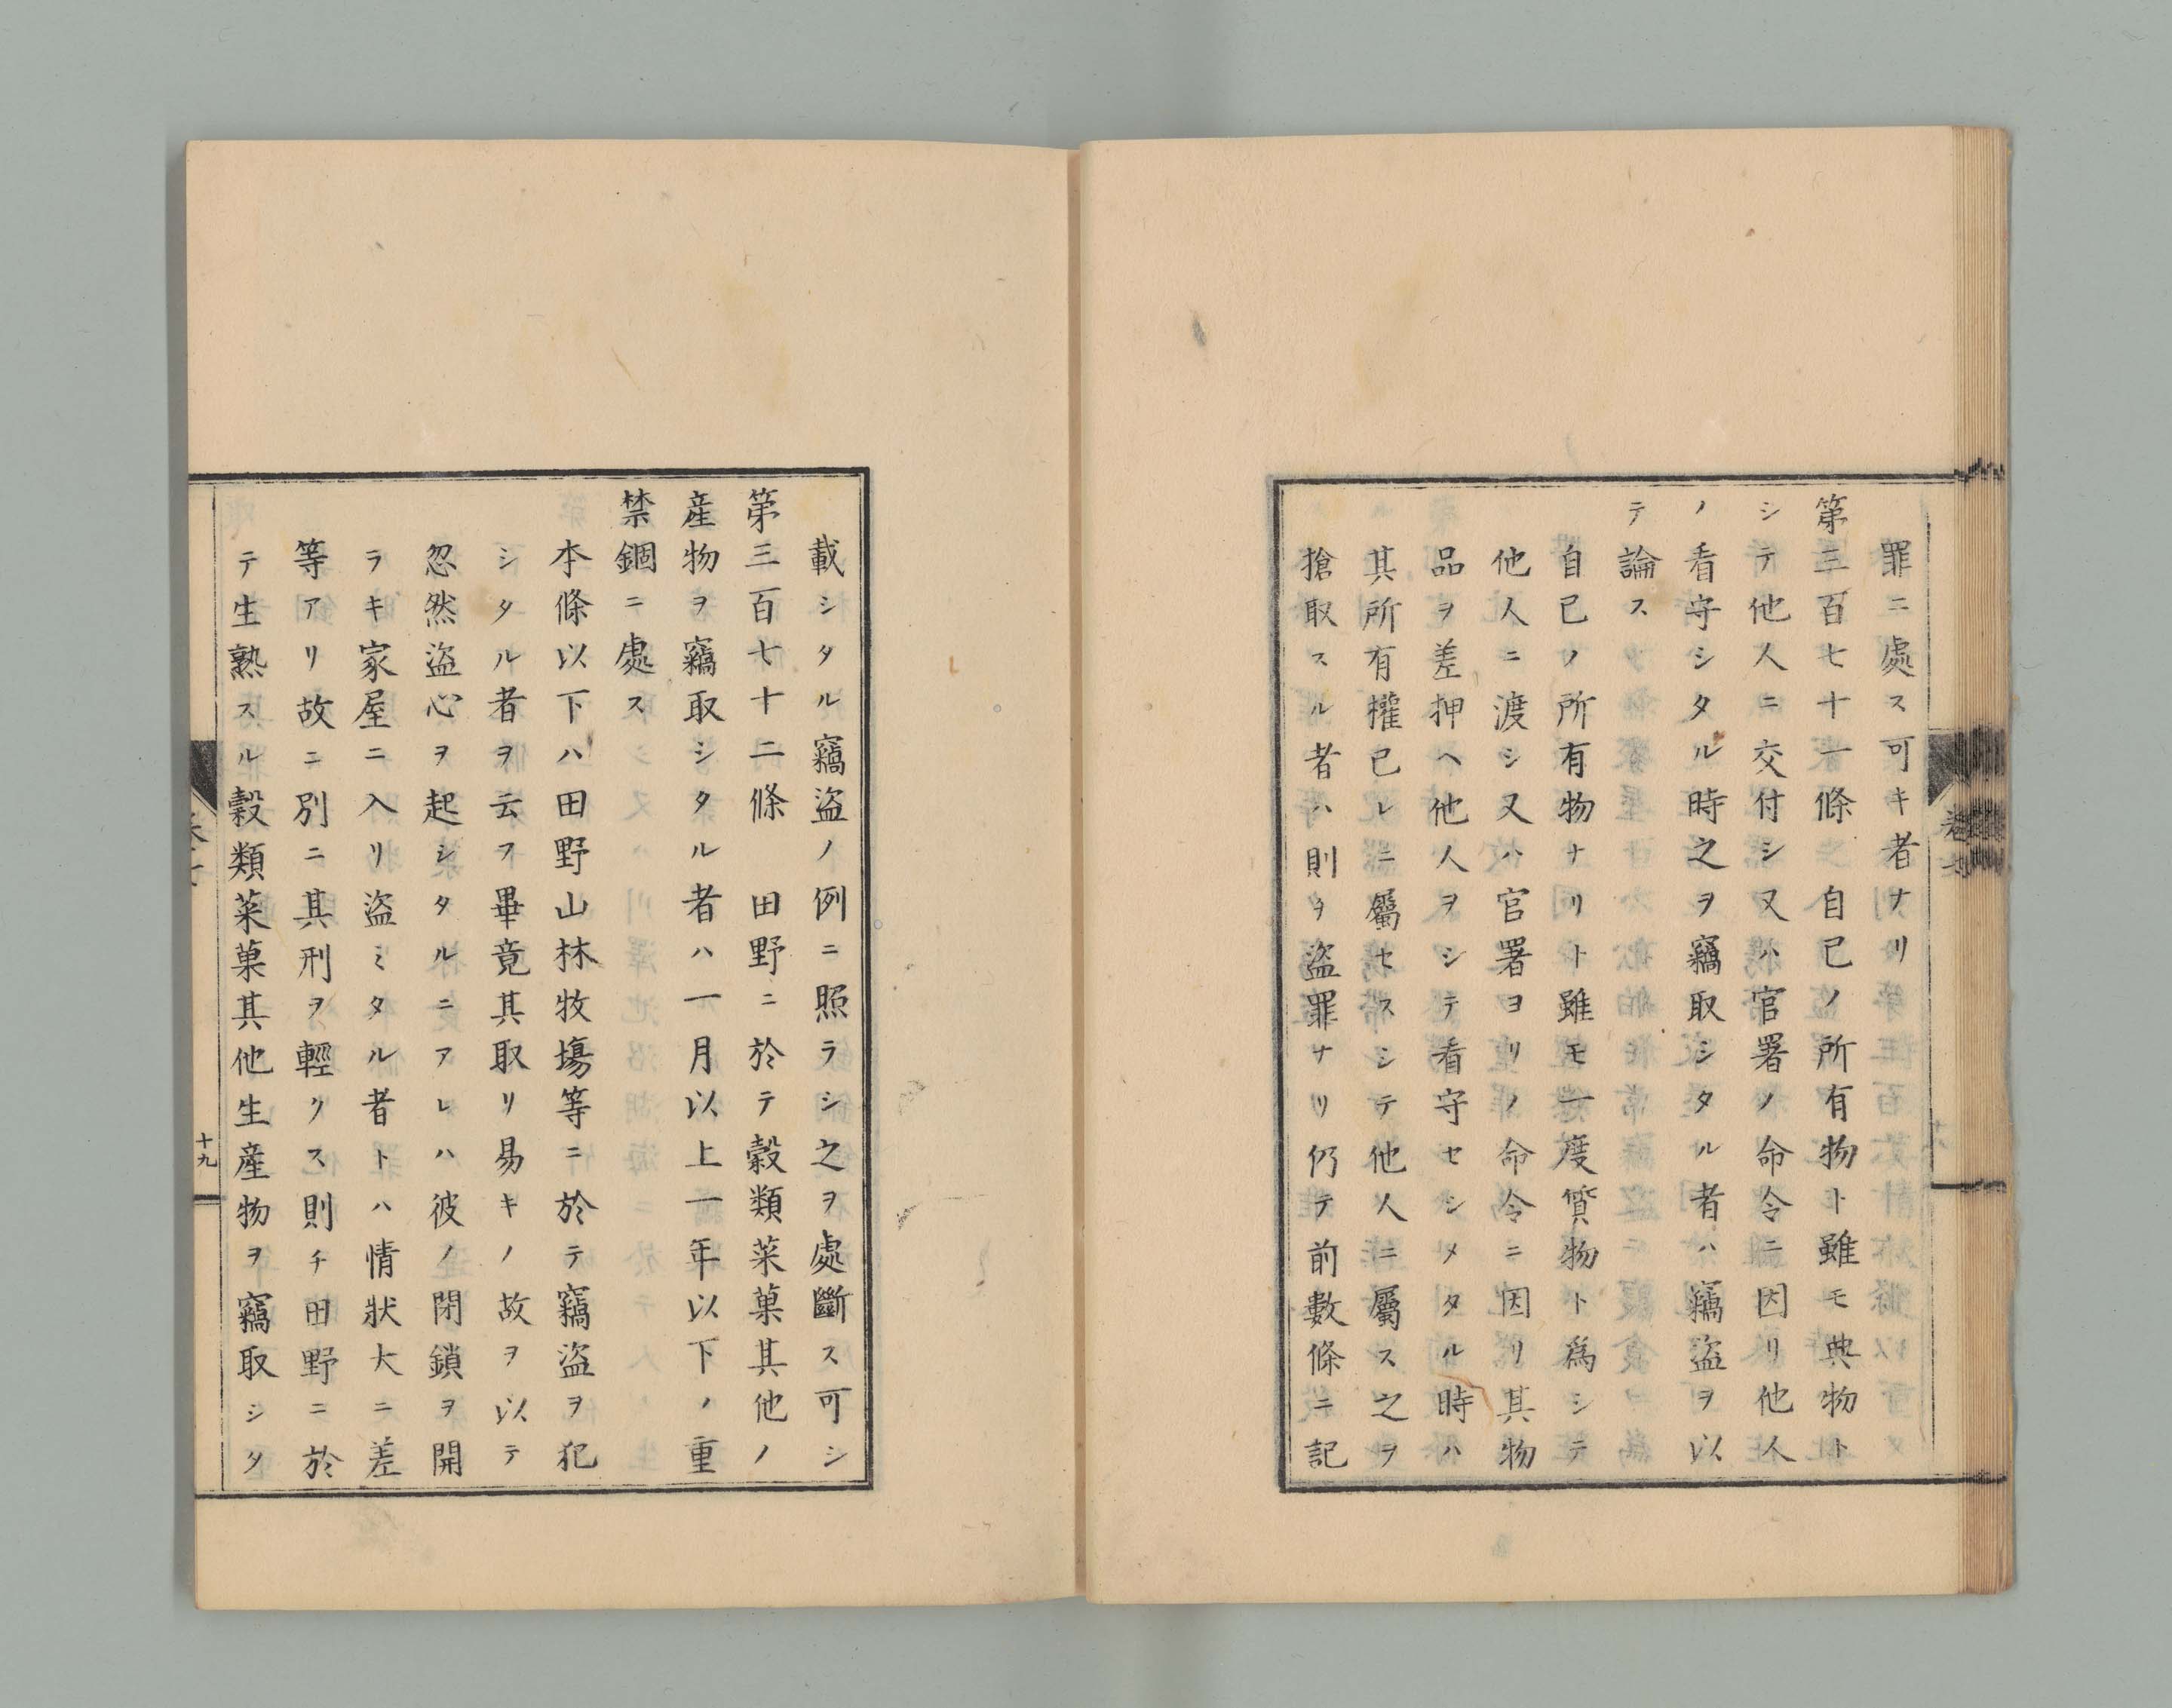 罪ニ處ス可キ者ナリ
第三百七十一條　自已ノ所有物ト雖モ典物ト
シテ他人ニ交付シ又ハ官署ノ命令ニ因リ他人
ノ看守シタル時之ヲ竊取シタル者ハ竊盗ヲ以
テ論ス
自已ノ所有物ナリト雖モ一度質物ト爲シテ
他人ニ渡シ又ハ官署ヨリノ命令ニ因リ其物
品ヲ差押ヘ他人ヲシテ看守セシメタル時ハ
其所有權已レニ屬セスシテ他人ニ屬ス之ヲ
搶取スル者ハ則チ盗罪ナリ仍テ前數條ニ記
載シタル竊盗ノ例ニ照ラシ之ヲ處斷ス可シ
第三百七十二條　田野ニ於テ穀類菜菓其他ノ
産物ヲ竊取シタル者ハ一月以上一年以下ノ重
禁錮ニ處ス
本條以下ハ田野山林牧塲等ニ於テ竊盗ヲ犯
シタル者ヲ云フ畢竟其取リ易キノ故ヲ以テ
忽然盗心ヲ起シタルニアレハ彼ノ閉鎖ヲ開
ラキ家屋ニ入リ盗ミタル者トハ情狀大ニ差
等アリ故ニ別ニ其刑ヲ輕クス則チ田野ニ於
テ生熟スル穀類菜菓其他生産物ヲ竊取シタ
十九